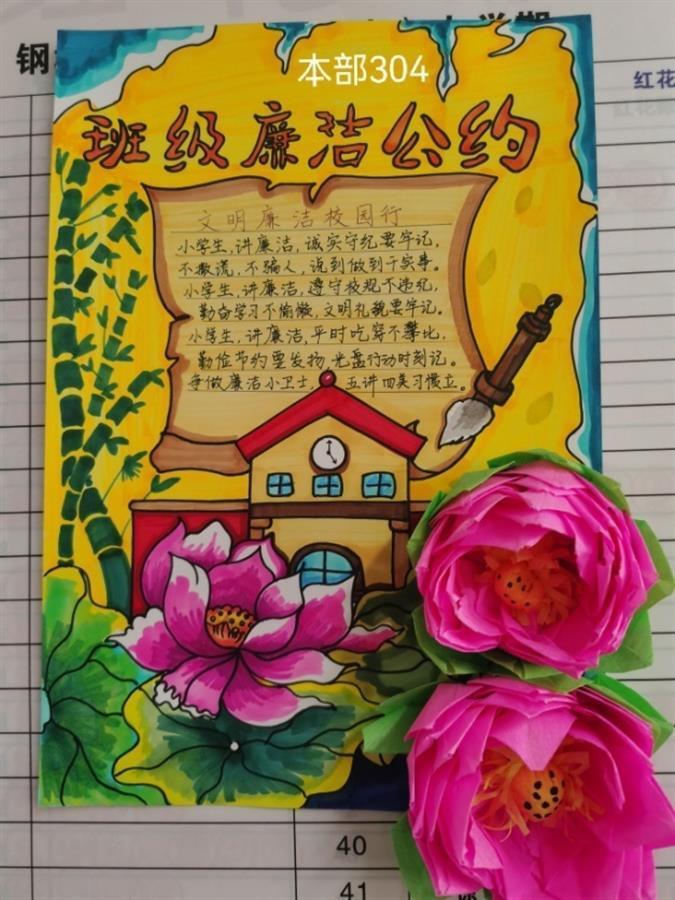 钢
本部304
红花
班级廉洁公约
文明廉洁校园行
小学生,讲廉洁,诚实守纪要牢记,
不撒谎,不骗人,说到做到干实事。
小学生,讲廉洁,遵守校规不违纪,
勤奋学习不偷懒,文明礼貌要牢记。
小学生,讲廉洁,平时吃穿不攀比,
勤俭节约要发扬,光盘行动时刻记。
争做廉洁小卫士,五讲四美习惯立。
40
41